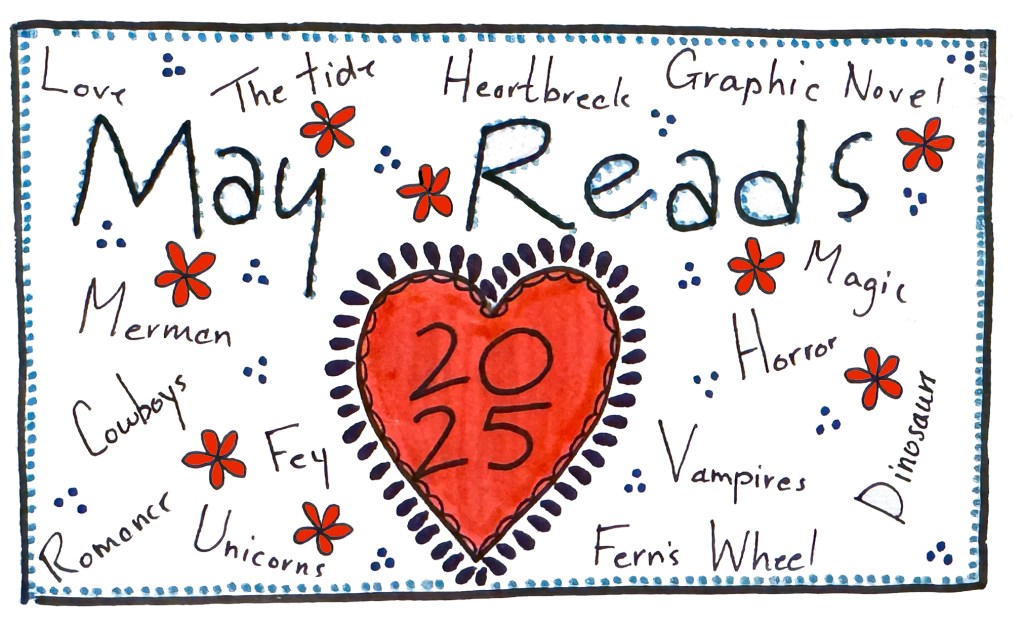 Love
The tide
Heartbreck
Graphic Novel
May Reads
Merman
Magic
20
25
Horror
Cowboys
Fey
Vampires
Dinosaur
Romance
Unicorns
Fern's Wheel